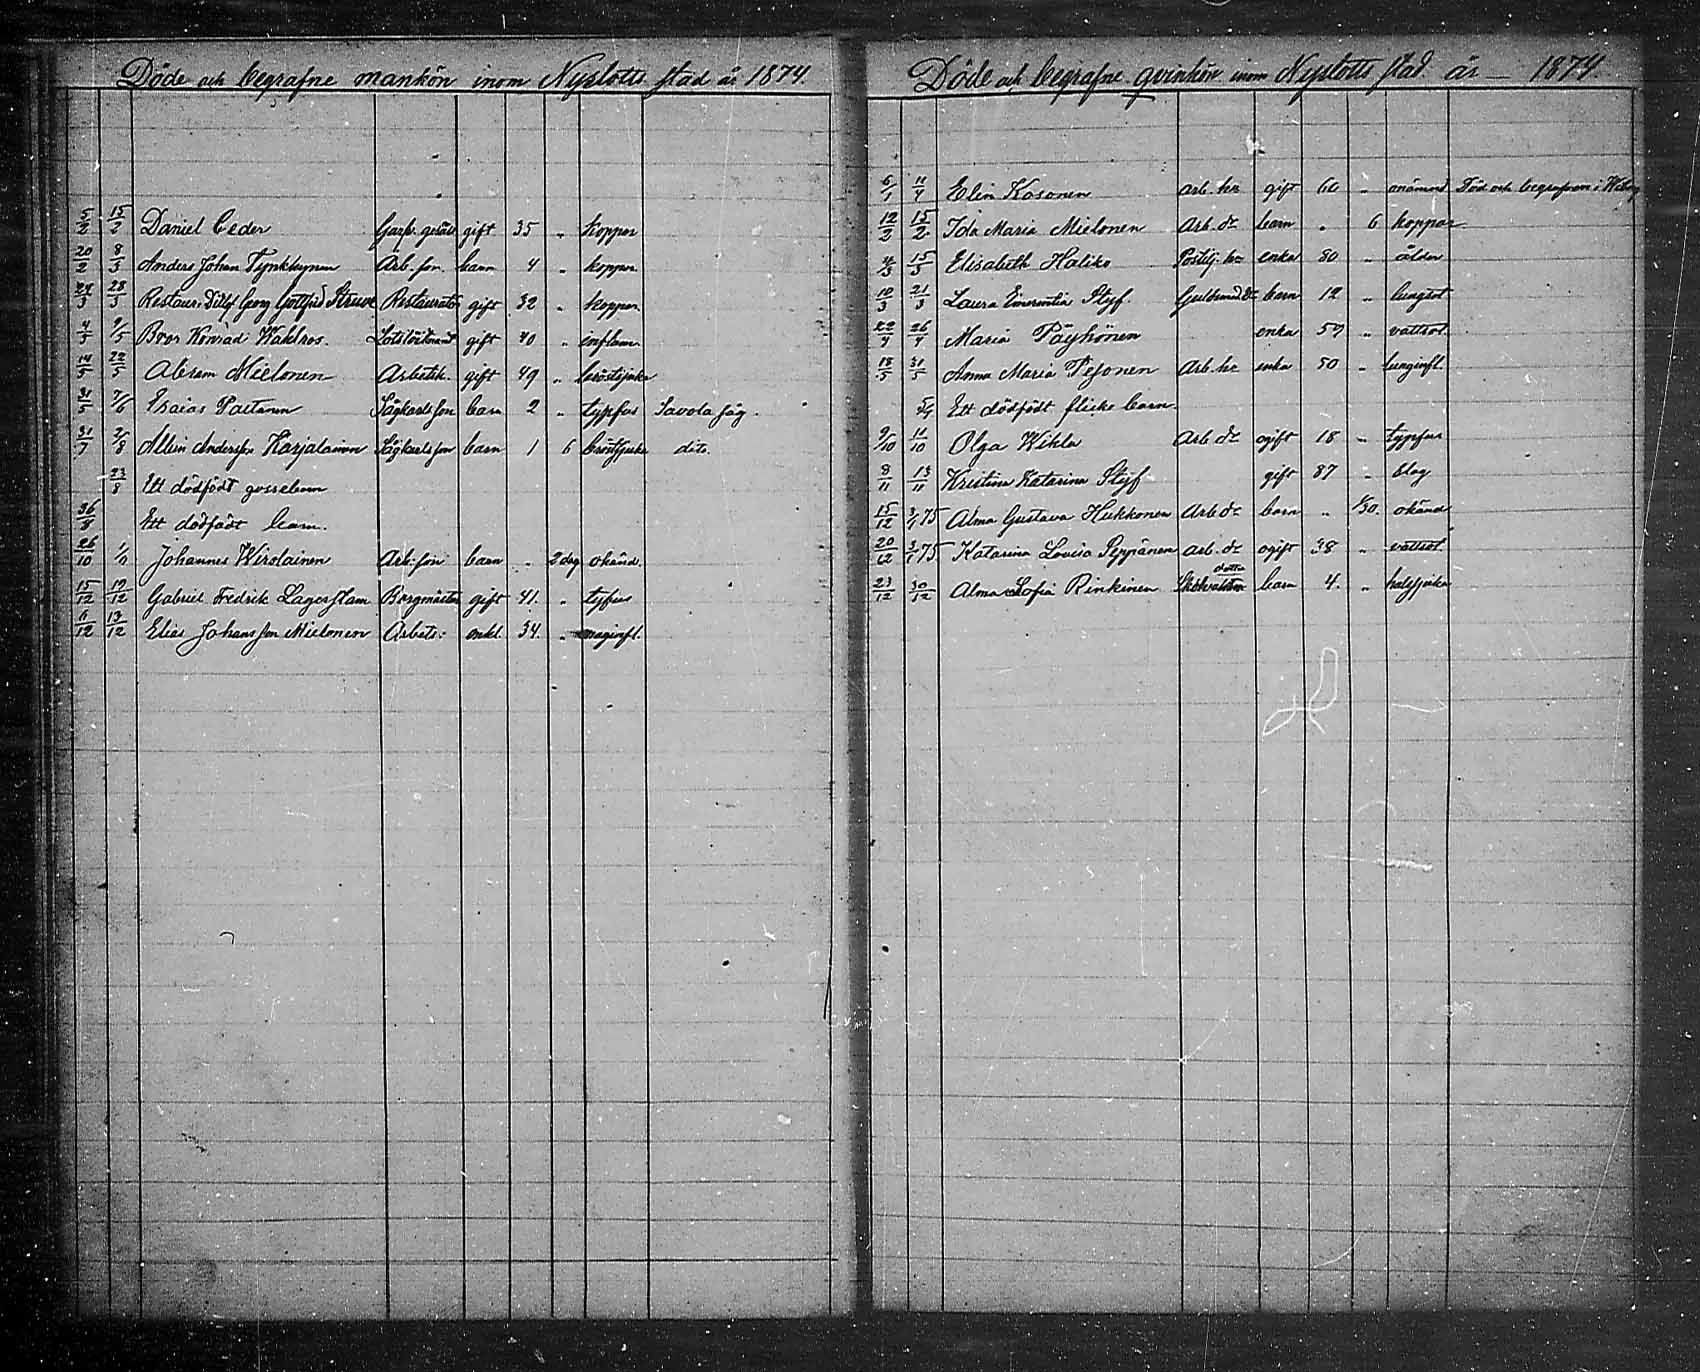 Döde och begrafne mankön inom Nyslotts stad år 1874.
5/2 15/2 Daniel Ceder Garfv. gesäll gift 35 " koppor
20/2 8/3 Anders Johan Tynkkynen Arb. son barn 4 " koppor
28/3 Restaur: Ditlof Georg Gottfried Struve Restauratör gift 32 " koppor
4/5 9/5 Bror Konrad Wahlroos. gift 40 " inflam.
14/5 22/5 Abram Mielonen Arbetsk. gift 49 " bröstsjuka
31/5 7/6 Esaias Paetanen Sågkarls son barn 2 " typfus Savola såg.
31/7 2/8 Albin Andersson Karjalainen Sågkarls son barn 1 6 bröstsjuka dito.
23/8 Ett dödfödt gossebarn
26/8 Ett dödfödt barn.
26/10 1/11 Johannes Wirolainen Arb: son barn " 2 dag okänd.
15/12 19/12 Gabriel Fredrik Lagerstam Borgmästare gift 41. " tyfus
6/12 13/12 Elias Johansson Mielonen Arbets: enkl. 34. " maginfl.
Döde och begrafne qvinkön inom Nyslotts stad år — 1874.
6/1 11/4 Elin Kosonen Arb. hu gift 60 " onämnd Död och begrafven i Wiborg
12/2 15/2 Ida Maria Mielonen Arb. dr barn " 6 koppor
4/3 15/3 Elisabeth Haliko Postilj. hu enka 80 " ålder
10/3 21/3 Laura Emerentia Styf. Guldsmed dr barn 12 " lungsot
22/4 26/4 Maria Päyhönen enka 59 " vattsot.
18/5 31/5 Anna Maria Pesonen Arb. hu enka 50 " lunginfl.
Ett dödfödt flicke barn.
9/10 11/10 Olga Wikla Arb. dr ogift 18 " typfus
8/11 13/11 Kristina Katarina Styf gift 87 " slag
15/12 3/1 75 Alma Gustava Hukkonen Arb dr barn " 1/30. okänd
20/12 3/1 75 Katarina Lovisa Seppänen arb. dr ogift 38 " vattsot.
23/12 30/12 Alma Sofia Rinkinen dotter barn 4. " halssjuka